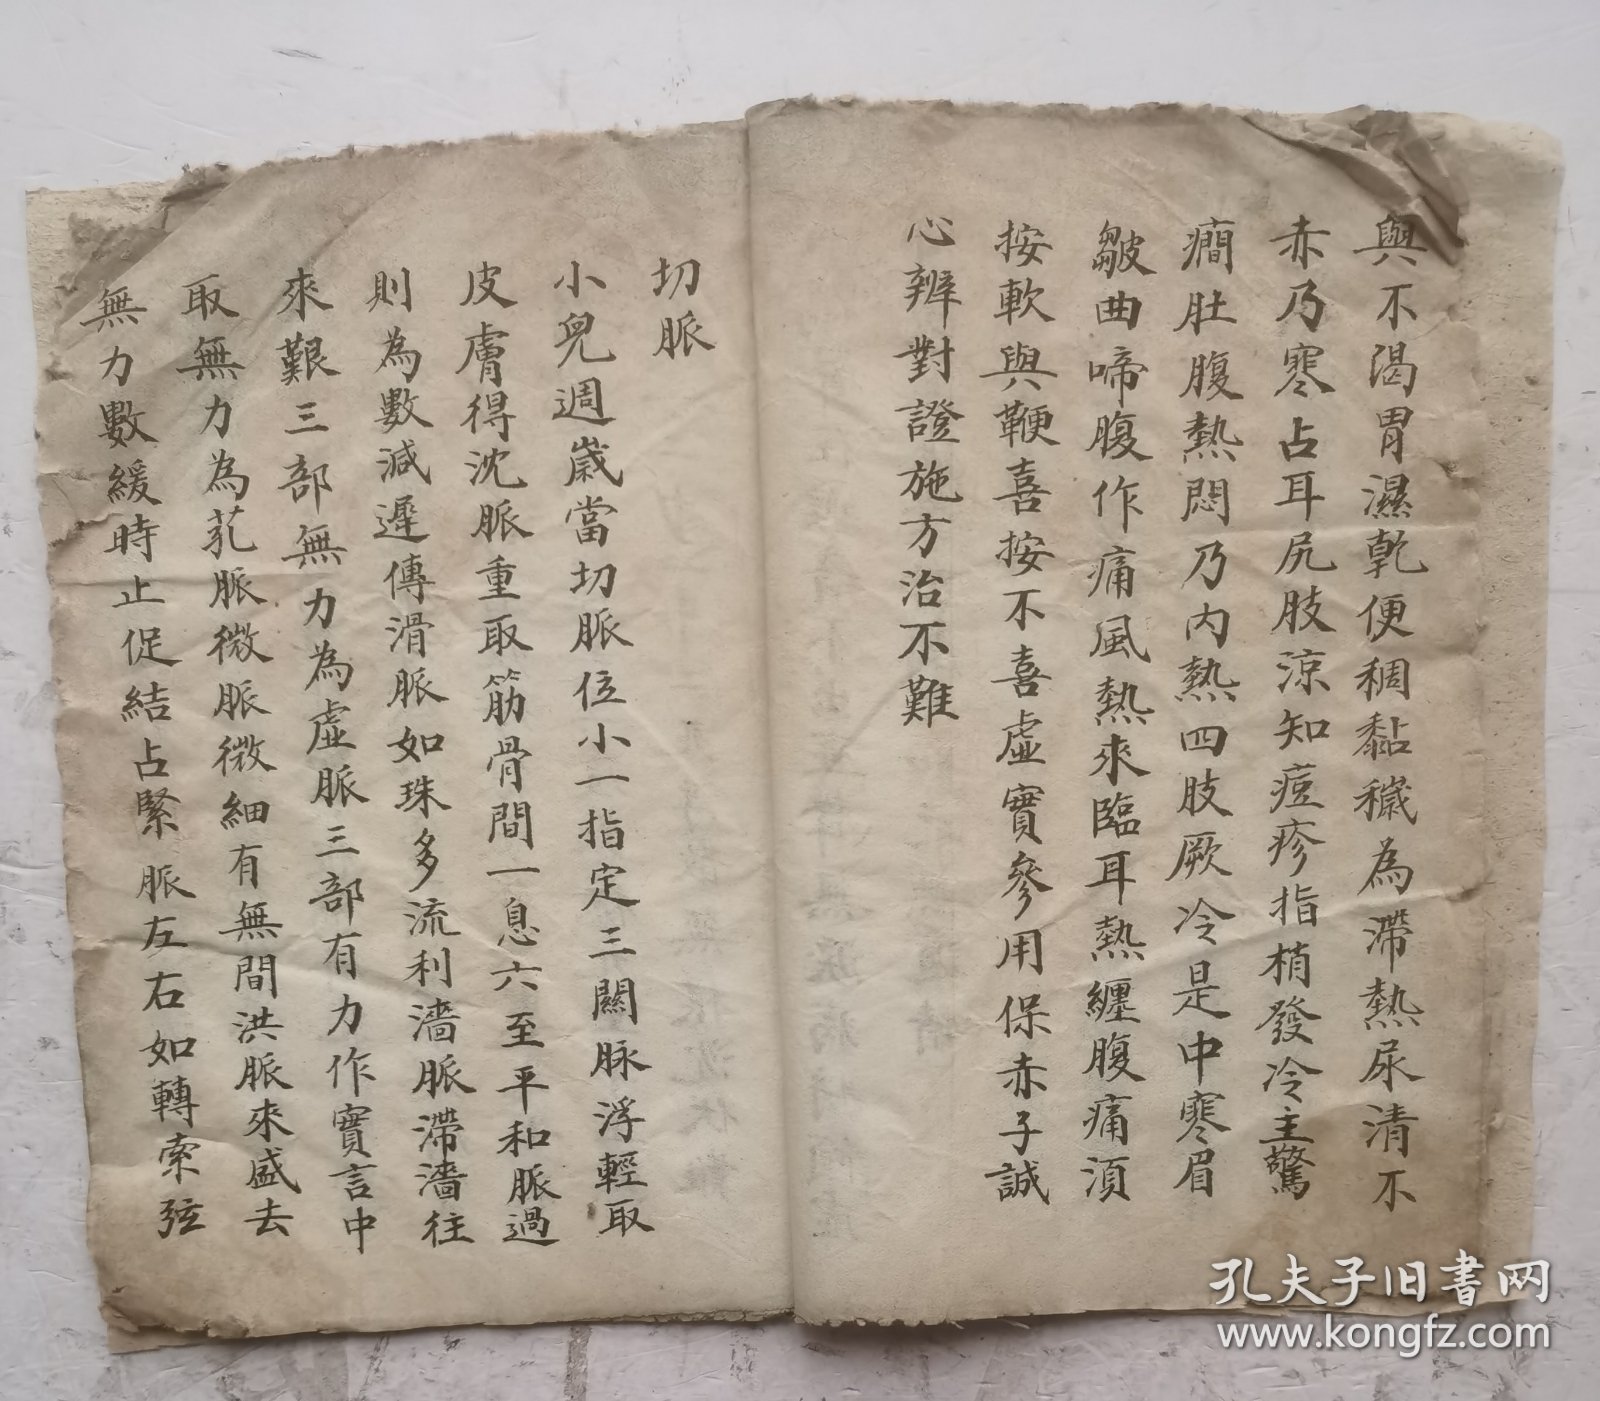 與不渴胃濕乾便稠黏穢為滯熱尿清不
赤乃寒占耳尻肢涼知痘疹指梢發冷主驚
癇肚腹熱悶乃內熱四肢厥冷是中寒眉
皺曲啼腹作痛風熱來臨耳熱纏腹痛須
按軟與鞕喜按不喜虛實參用保赤子誠
心辨對證施方治不難
切脈
小兒週歲當切脈位小一指定三關脉浮輕取
皮膚得沈脈重取筋骨間一息六至平和脈過
則為數減遲傳滑脈如珠多流利濇脈滯濇往
來艱三部無力為虛脈三部有力作實言中
取無力為芤脈微脈微微細有無間洪脈來盛去
無力數緩時止促結占緊脈左右如轉索弦
孔夫子旧书网
www.kongfz.com